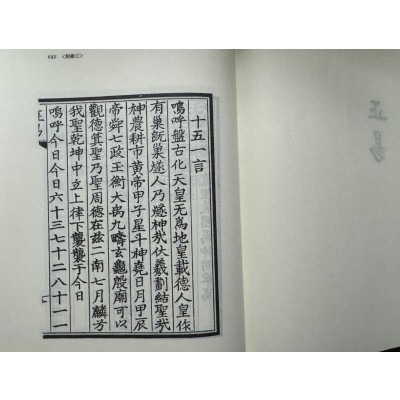 正易
十五一言
嗚呼盤古化天皇无為地皇載德人皇作
有巢旣巢燧人乃燧神哉伏羲劃結聖哉
神農耕市黃帝甲子星斗神堯日月甲辰
帝舜七政玉衡大禹九疇玄龜殷廟可以
觀德箕聖乃聖周德在玆二南七月麟兮
我聖乾坤中立上律下襲襲于今日
嗚呼今日今日六十三七十二八十一一